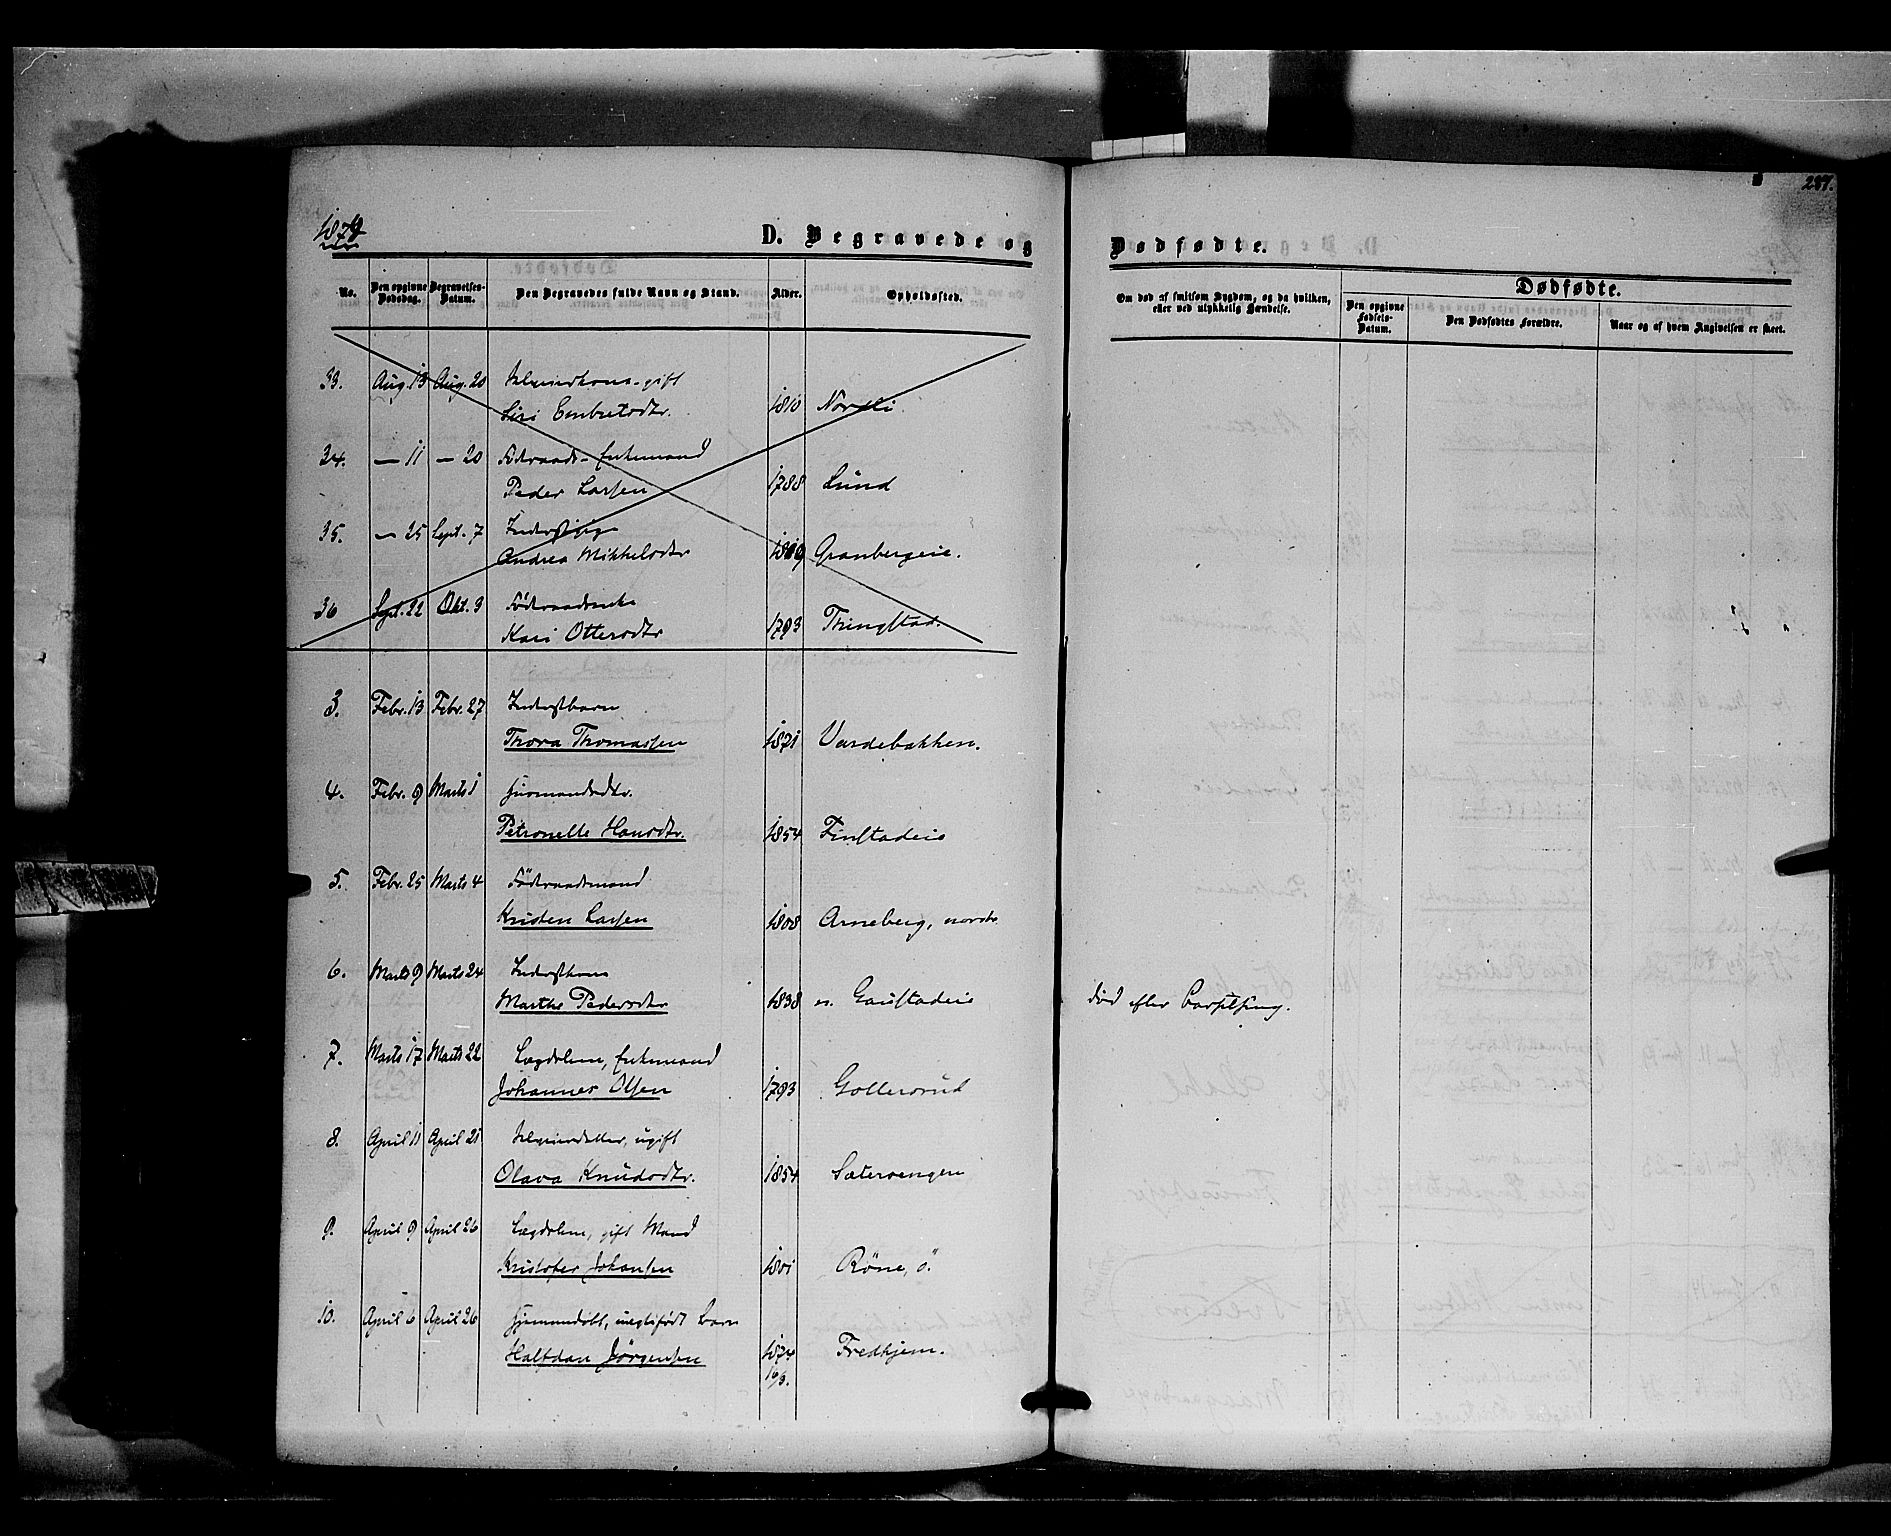 1874
287.
D. Begravede og Dødfødte.
No.
Den opgivne Dødsdag.
Begravelses-Datum.
Den Begravedes fulde Navn og Stand.
Alder.
Opholdssted.
Om død af smitsom Sygdom, og da hvilken, eller ved ulykkelig Hændelse.
Dødfødte.
Den opgivne Fødsels-Datum.
Den Dødfødtes Forældre.
Naar og af hvem Angivelsen er skeet.
33. Aug. 13 Aug. 20 Selveierkone - gift
Siri Embretsdtr. 1810 Nordli.
34. — 11 — 20 Föderaads - Enkemand
Peder Larsen 1788 Lund
35. — 25 Sept. 7
Andrea Mikkelsdtr Granbergeie.
36 Sept. 22 Okt. 3 Föderaadsenke
Kari Ottersdtr 1793 Thingstad.
3. Febr. 13 Febr. 27 Inderstbarn
Thora Thomassen 1871 Vardebakken.
4. Febr. 9 Marts 1 Husmandsdtr.
Petronelle Hansdtr. 1854 Finstadeie
5. Febr. 25 Marts 4 Föderaadsmand
Kristen Larsen 1808 Arneberg, nordre
6. Marts 9 Marts 24 Inderstkone
Marthe Pedersdtr 1838 n. Gaustadeie død efter Barselseng.
7. Marts 17 Marts 22 Lægdslem, Enkemand
Johannes Olsen 1793 Gollersrud
8. April 11 April 21 Selveierdatter, ugift
Olava Knudsdtr. 1854 Sætervengen
9. April 9 April 26 Lægdslem, gift Mand
Kristofer Johansen 1801 Röne, ö.
10. April 6 April 26 Hjemmedöbt, uægtefödt Barn
Halfdan Jörgensen 1874 Fredhjem.
16/3.